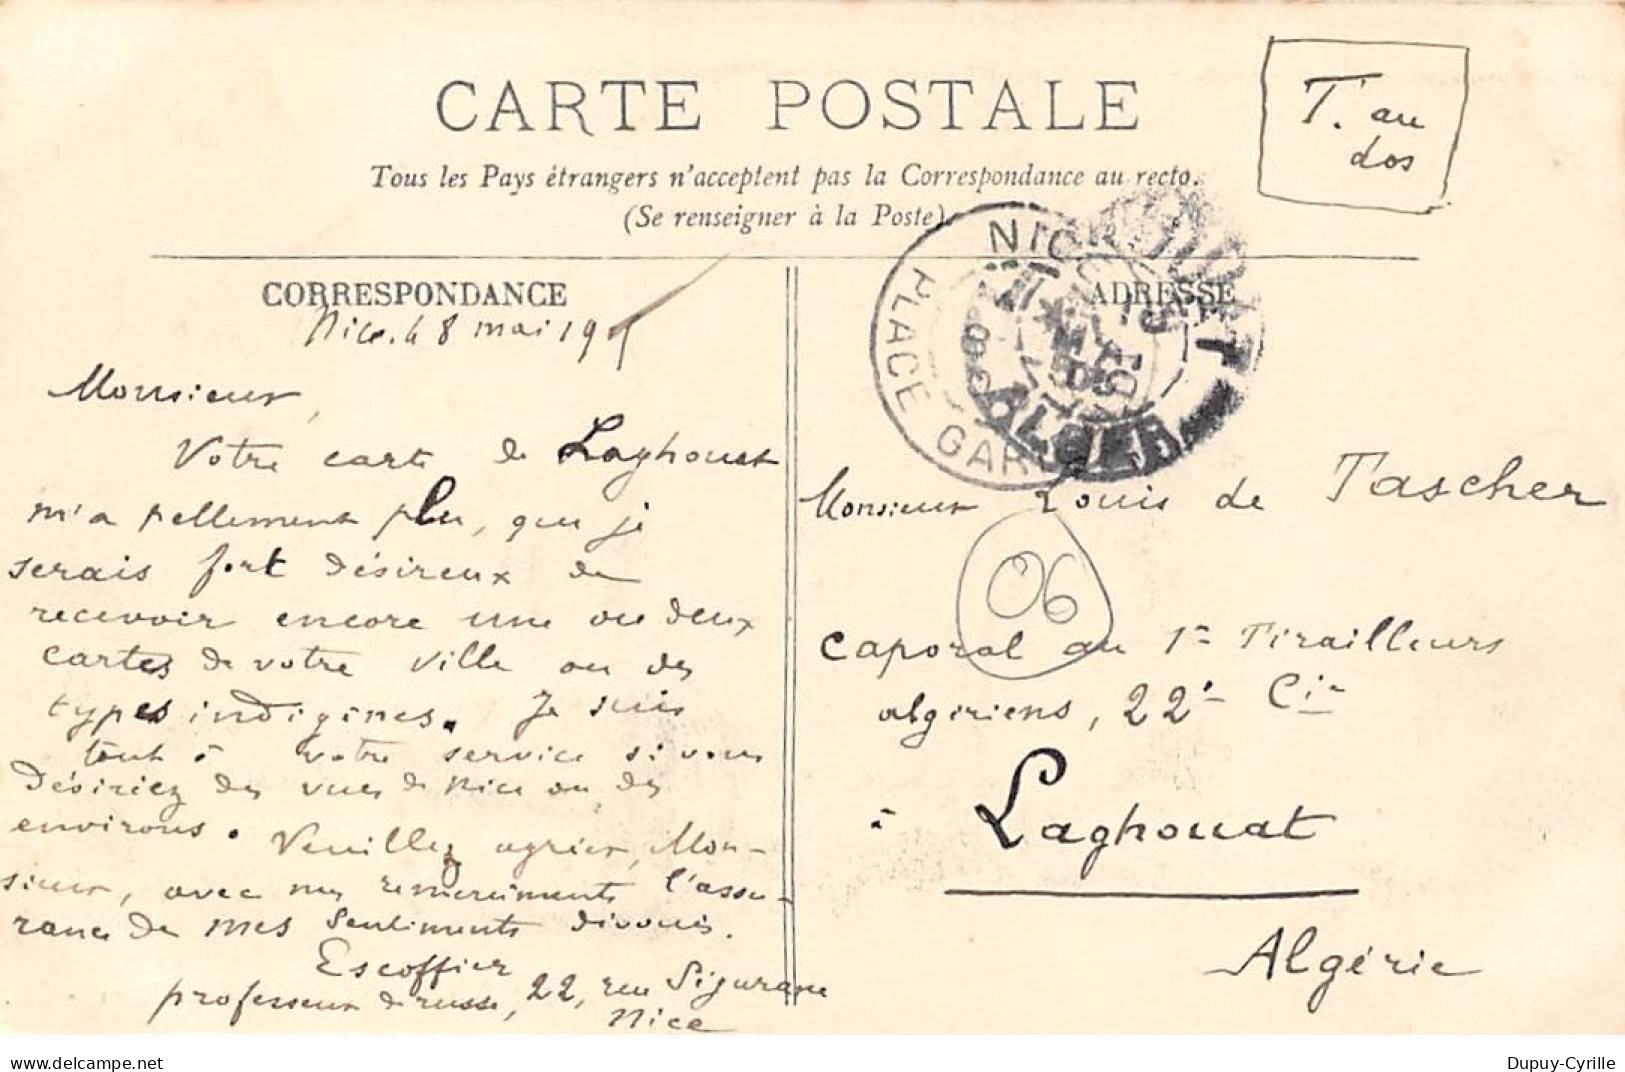 CARTE POSTALE
T. au
dos
Tous les Pays étrangers n'acceptent pas la Correspondance au recto.
(Se renseigner à la Poste)
CORRESPONDANCE
Nice, le 8 mai 19
Monsieur,
Votre carte de Laghouat
m'a tellement plu, que je
serais fort désireux de
recevoir encore une ou deux
cartes de votre ville ou des
types indigènes. Je suis
tout à votre service si vous
désiriez des vues de Nice ou des
environs. Veuillez agréer, Mon-
sieur, avec mes remerciments l'assu-
rance de mes sentiments dévoués.
Escoffier
professeur de russe, 22, rue Sigurane
Nice
ADRESSE
NICE
PLACE GARIBALDI
Monsieur Louis de Tascher
06
caporal au 1er Tirailleurs
algériens, 22e Cie
à Laghouat
Algérie
delcampe.net
Dupuy-Cyrille